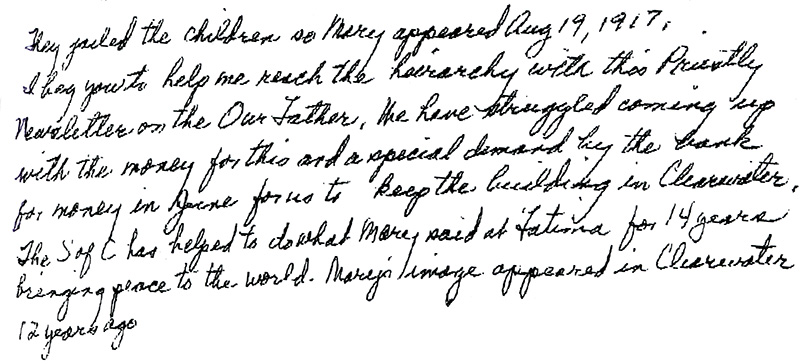 They jailed the children so Mary appeared Aug 19, 1917.
I beg you to help me reach the heirarchy with this Priestly
Newsletter on the Our Father. We have struggled coming up
with the money for this and a special demand by the bank
for money in June for us to keep the building in Clearwater.
The S of C has helped to do what Mary said at Fatima for 14 years
bringing peace to the world. Mary's image appeared in Clearwater
12 years ago